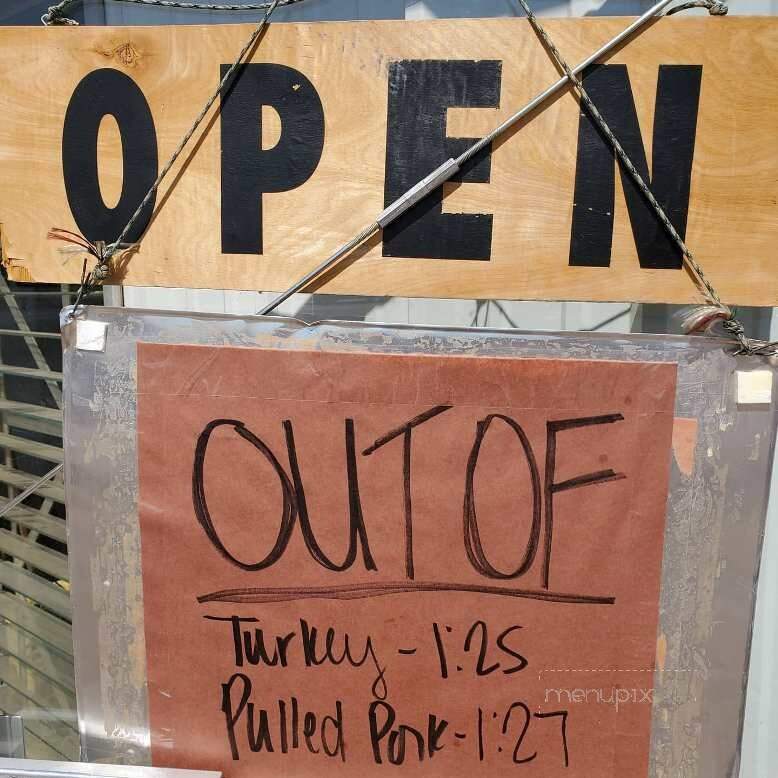 OPEN
OUT OF
Turkey - 1:25
menupix
Pulled Pork - 1:27